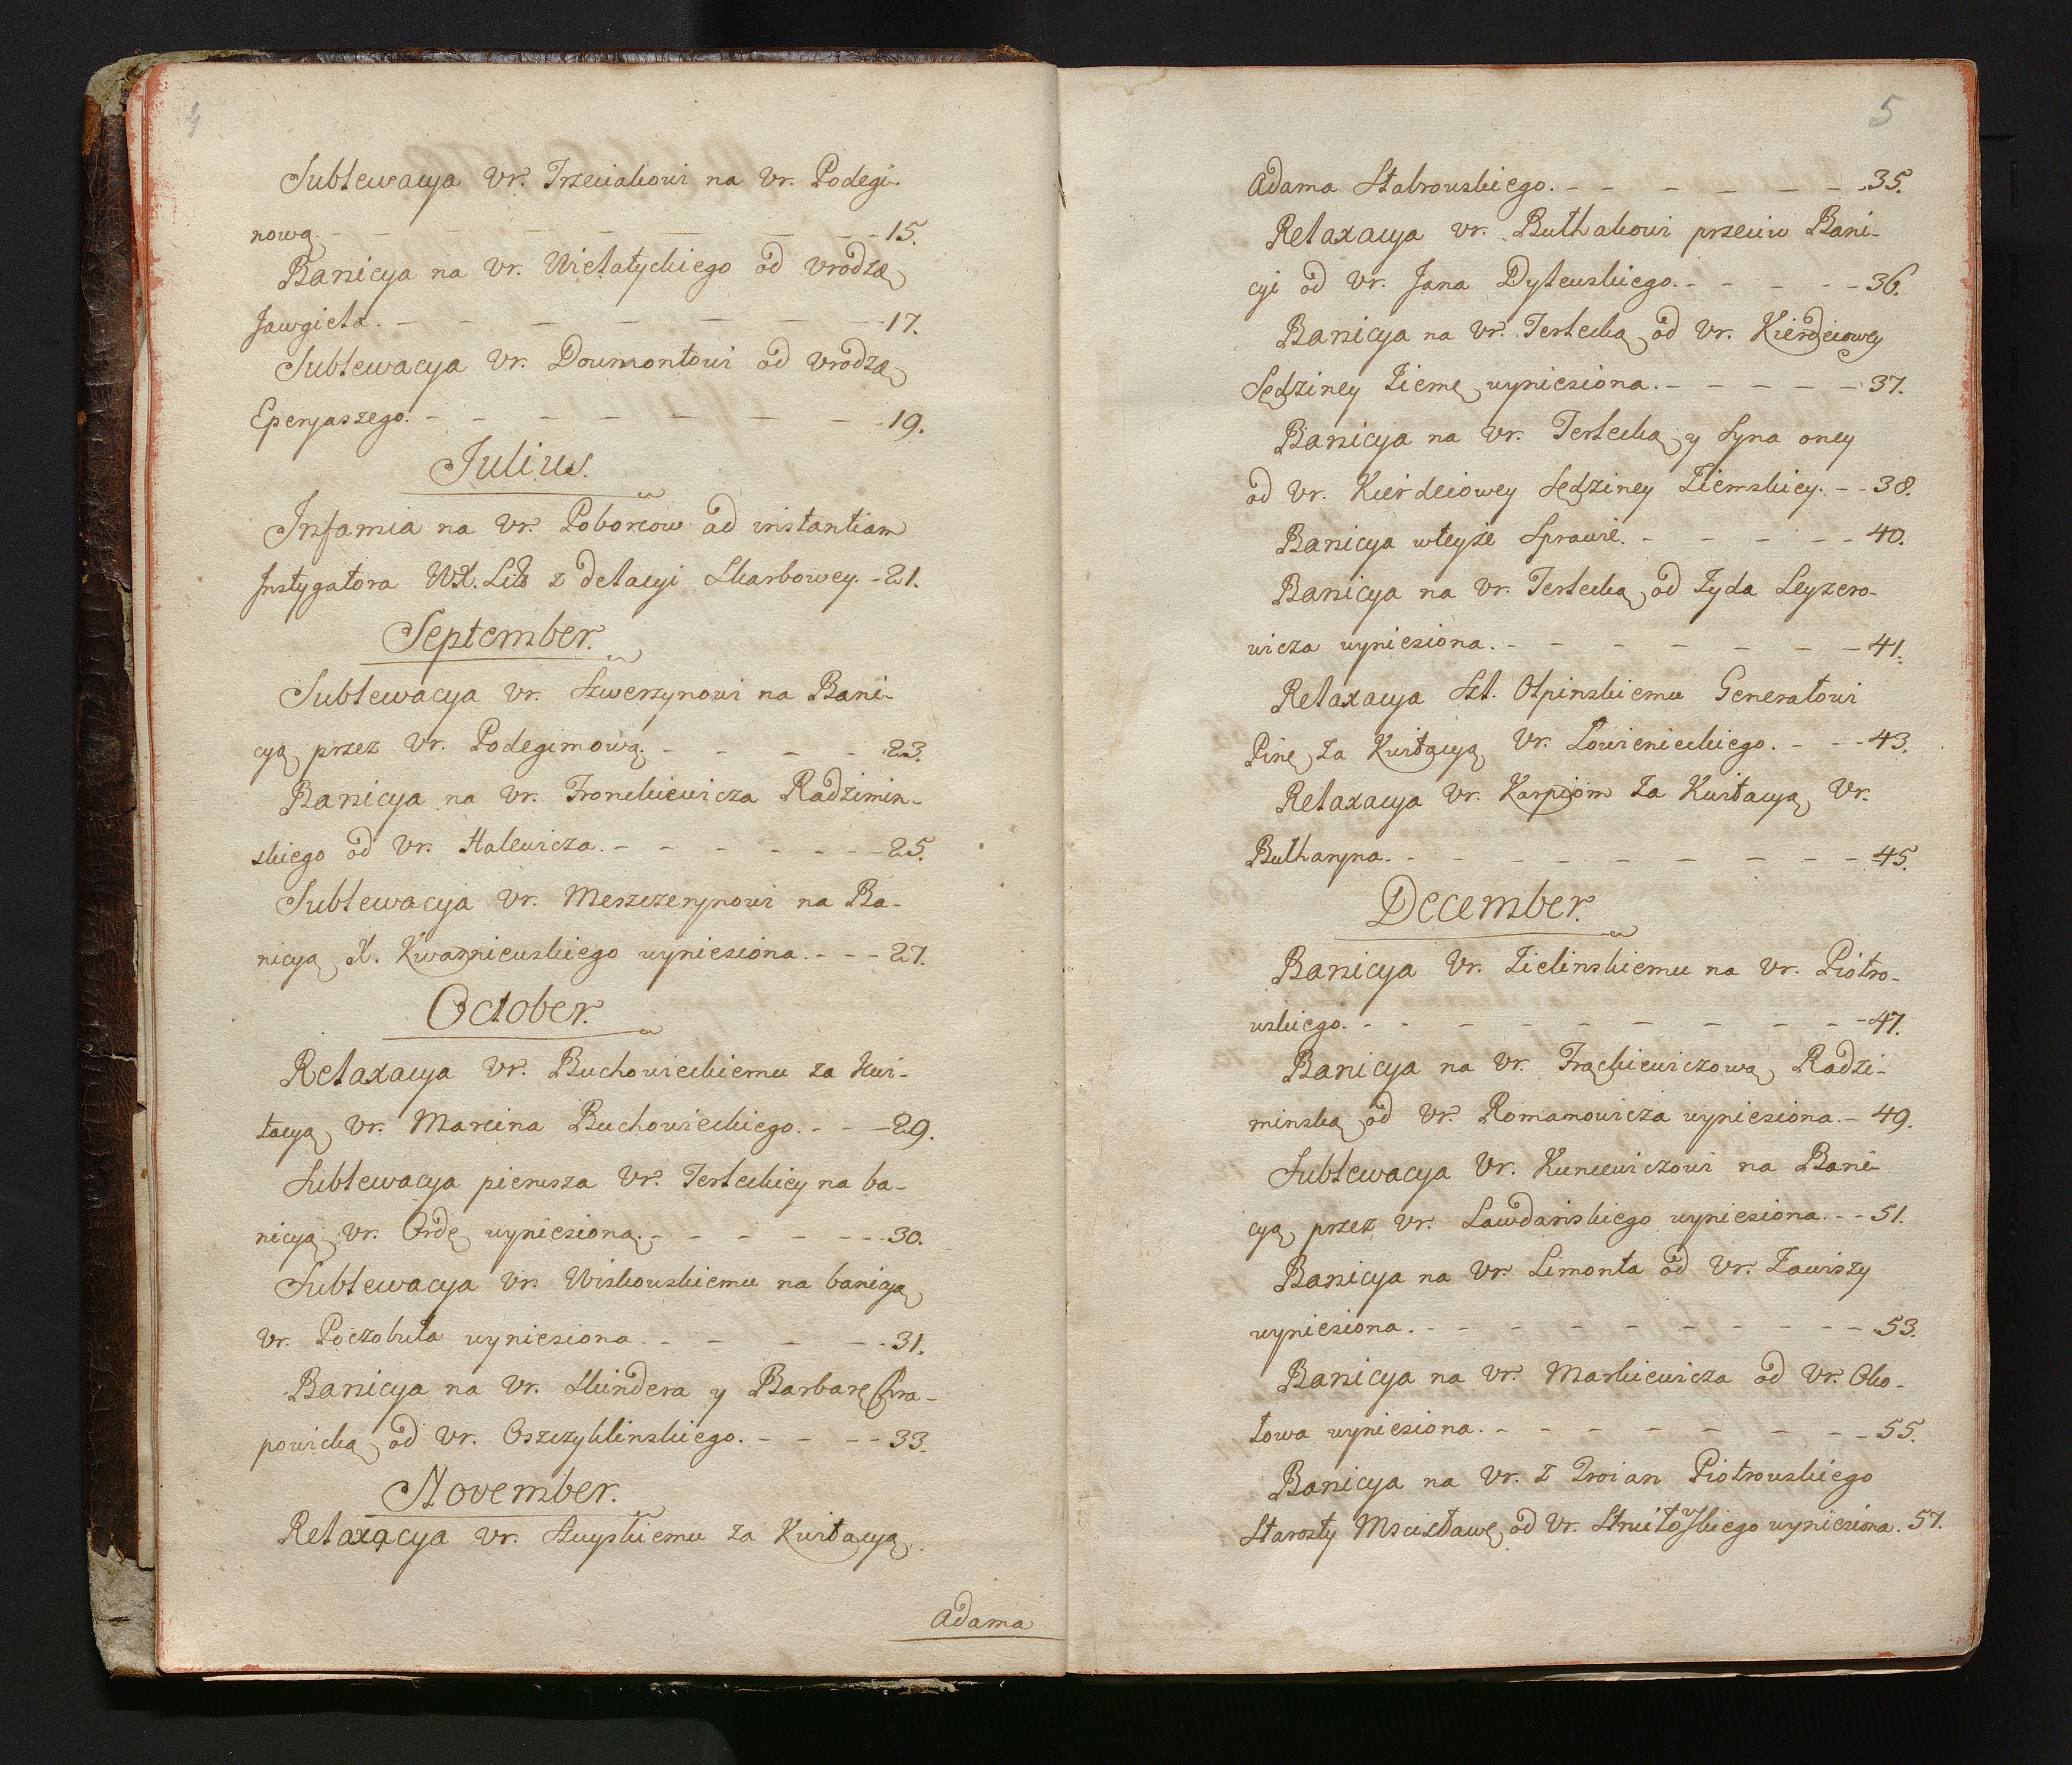 4
Sublewacya Vr. Trzeciakowi na Vr. Podegi-
nową. - - - - - - - - 15.
Banicya na Vr. Wielatyckiego od Vrodzę
Jawgiela. - - - - - - - 17.
Sublewacya Vr. Doumontowi od Vrodzę
Eperyaszego. - - - - - - - 19.
Julius.
Infamia na Vr. Poborcow ad instantiam
Instygatora WX. Litt z delacyi Skarbowey. - 21.
September.
Sublewacya Vr. Szwerzynowi na Bani-
cyą przez Vr. Podegimową. - - - - 23.
Banicya na Vr. Fronckiewicza Radzimin-
skiego od Vr. Halewicza. - - - - - - 25.
Sublewacya Vr. Meszczerynowi na Ba-
nicyą X. Kwasniewskiego wyniesiona. - - - 27.
October.
Relaxacya Vr. Buchowieckiemu za Kwi-
tacyą Vr. Marcina Buchowieckiego. - - - 29.
Sublewacya pierwsza Vr. Terleckiey na ba-
nicyą Vr. Ordę wyniesioną. - - - - - - 30.
Sublewacya Vr. Wiskouskiemu na banicyą
Vr. Poczobuta wyniesiona. - - - - - 31.
Banicya na Vr. Skindera y Barbarę Chra-
powicką od Vr. Oszczyklinskiego. - - - - 33.
November.
Relaxacya Vr. Szuyskiemu za Kwitacyą
Adama
5
Adama Stabrouskiego. - - - - - - - 35.
Relaxacya Vr. Bułhakowi przeciw Bani-
cyi od Vr. Jana Dylewskiego. - - - - - 36.
Banicya na Vr. Terlecką od Vr. Kierdeiowey
Sędziney Ziemę wyniesiona. - - - - - 37.
Banicya na Vr. Terlecką y Syna oney
od Vr. Kierdeiowey Sędziney Ziemskiey. - - 38.
Banicya wteyże Sprawie. - - - - - 40.
Banicya na Vr. Terlecką od Żyda Leyzero-
wicza wyniesiona. - - - - - - - 41.
Relaxacya Szl. Olpinskiemu Generałowi
Pinę za Kwitacyą Vr. Łowienieckiego. - - - 43.
Relaxacya Vr. Karpiom za Kwitacyą Vr.
Bułharyna. - - - - - - - - - 45.
December.
Banicya Vr. Zielinskiemu na Vr. Piotro-
wskiego. - - - - - - - - - 47.
Banicya na Vr. Frąckiewiczową Radzi-
minską od Vr. Romanowicza wyniesiona. - 49.
Sublewacya Vr. Kuncewiczowi na Bani-
cyą przez Vr. Lawdańskiego wyniesiona. - - 51.
Banicya na Vr. Limonta od Vr. Zawiszy
wyniesiona. - - - - - - - - - 53.
Banicya na Vr. Markiewicza od Vr. Oko-
łowa wyniesiona. - - - - - - - - 55.
Banicya na Vr. z Troian Piotrowskiego
Starosty Mscisławę od Vr. Strutowskiego wyniesiona. 57.